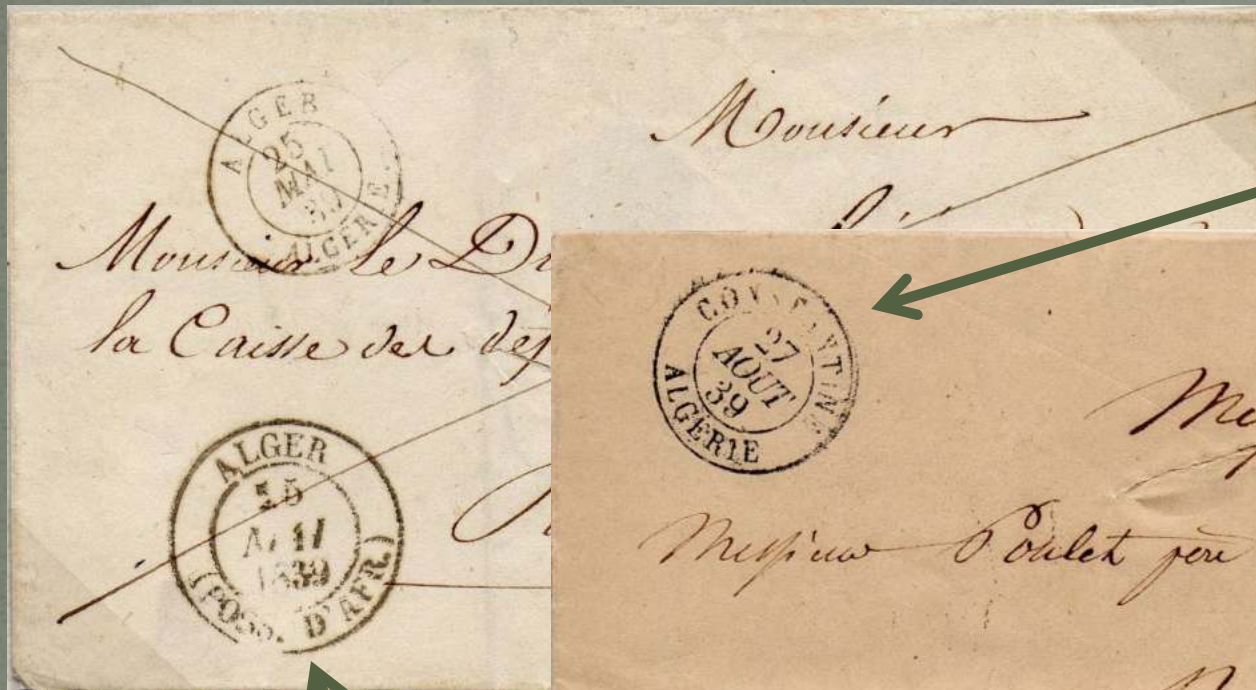 ALGER
25
MAI
ALGERIE
Monsieur
Monsieur le
la Caisse des
ALGER
15
1839
(POSS. D'AFR.)
CONSTANTINE
27
AOUT
39
ALGERIE
Poulet père